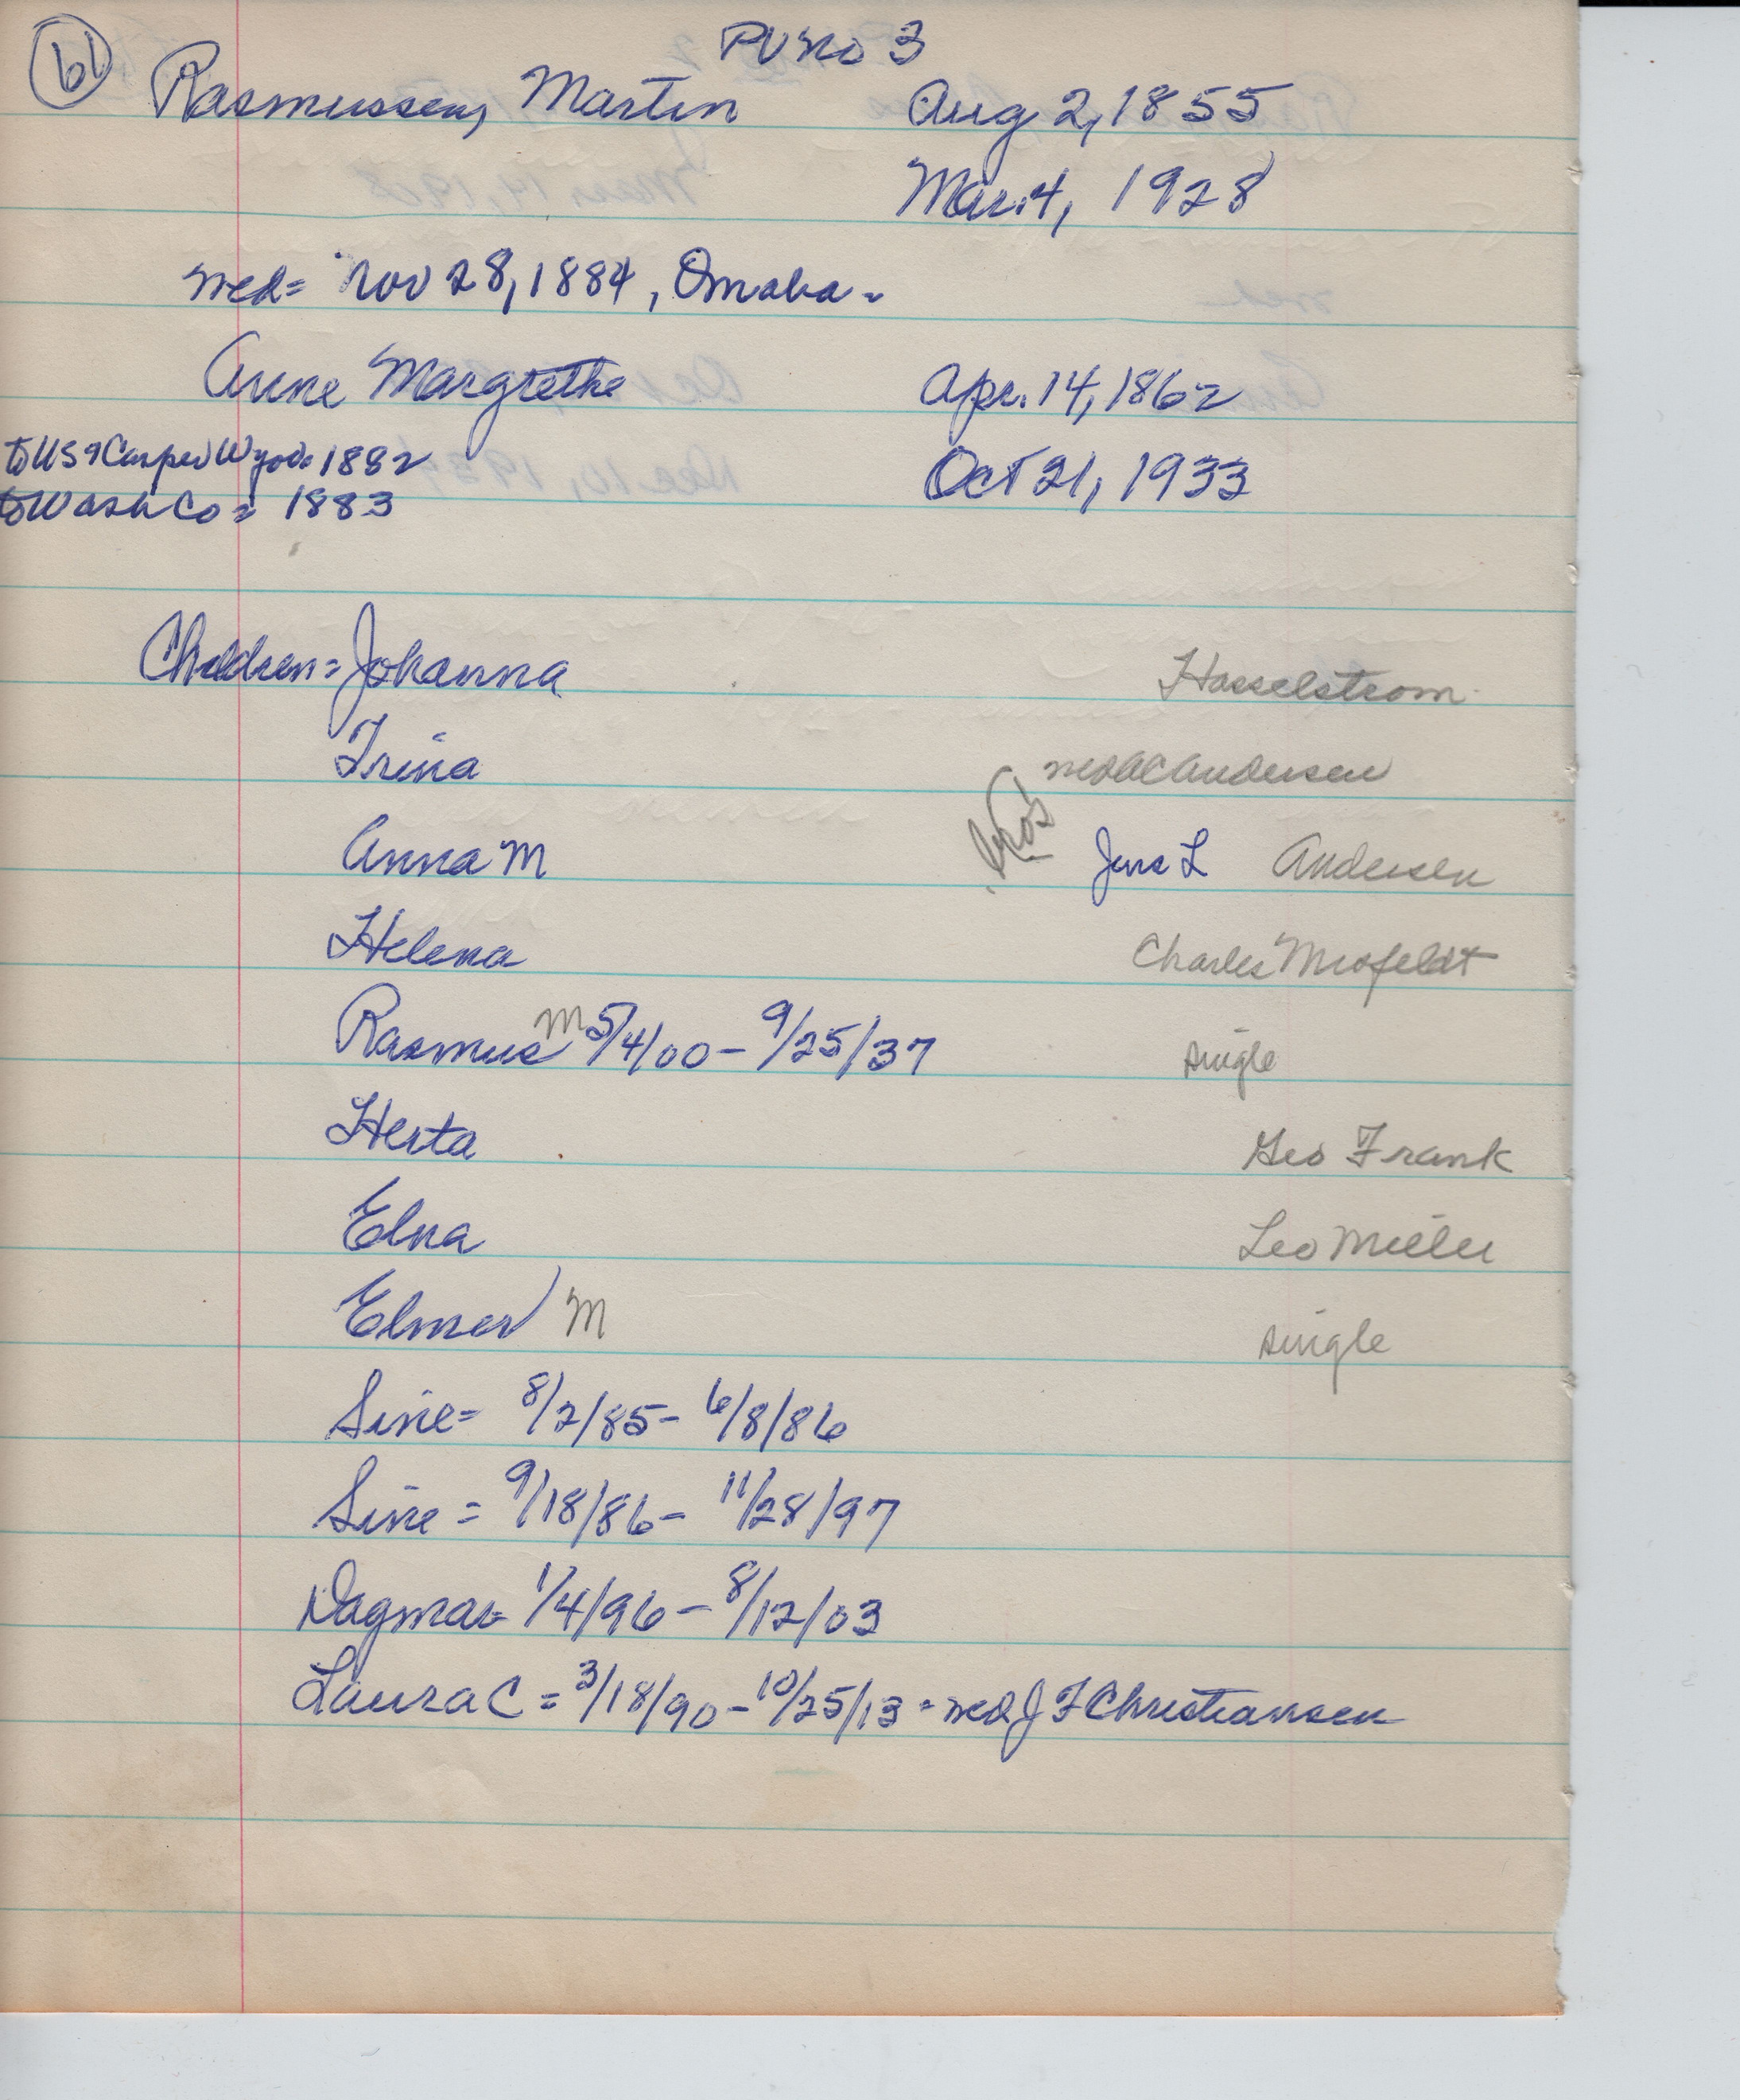 61
PV No 3
Rasmussen, Martin Aug 2, 1855
Mar. 4, 1928
med = Nov 28, 1884, Omaha =
Anne Margrethe Apr. 14, 1862
to US & Casper Wyo = 1882 Oct 21, 1933
to Wash Co = 1883
Children = Johanna Hasselstrom
Trina med AC Andersen
bros
Anna M Jens L Andersen
Helena Charles
Rasmus M 5/4/00 - 9/25/37 single
Herta Geo Frank
Elna Leo Miller
Elmer M single
Sine = 8/2/85 - 6/8/86
Sine = 9/18/86 - 11/28/97
Dagmar = 1/4/96 - 8/12/03
Laura C = 3/18/90 - 10/25/13 = med J F Christiansen